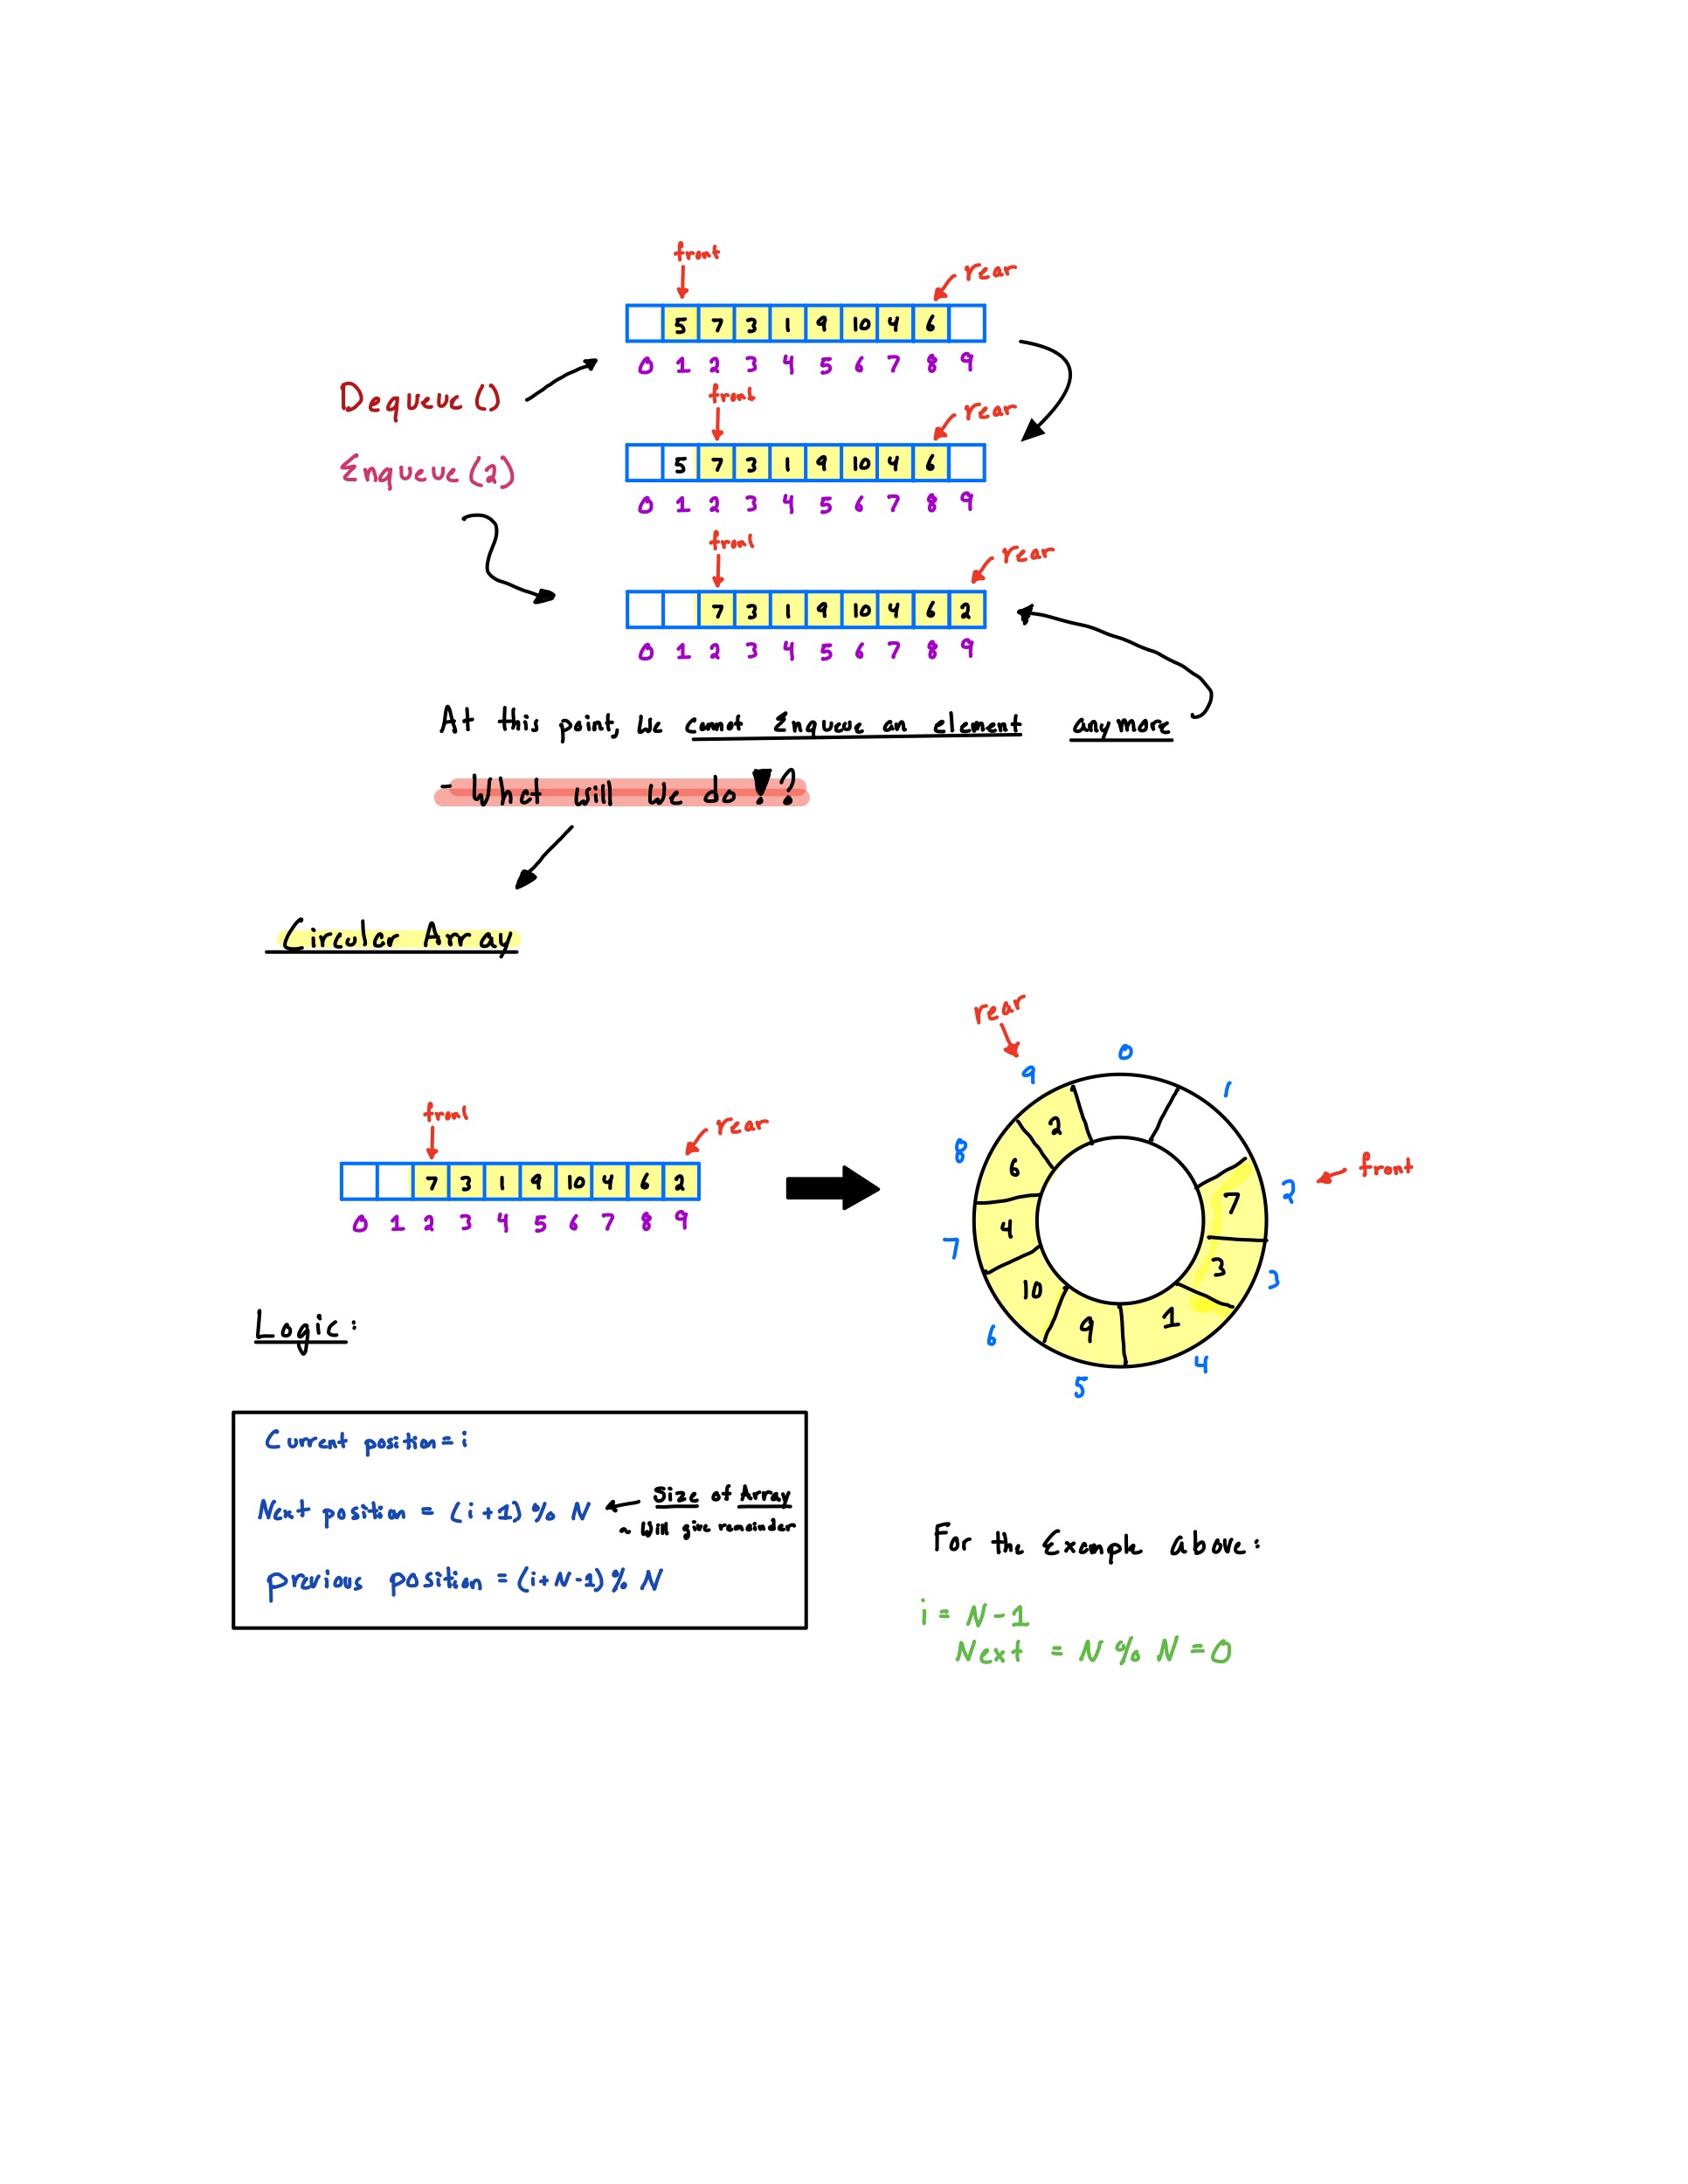 front
rear
5 7 3 1 9 10 4 6
0 1 2 3 4 5 6 7 8 9
Dequeue ()
front
rear
5 7 3 1 9 10 4 6
0 1 2 3 4 5 6 7 8 9
Enqueue (2)
front
rear
7 3 1 9 10 4 6 2
0 1 2 3 4 5 6 7 8 9
At this point, we cannot Enqueue an element anymore
- What will we do !?
Circular Array
front
rear
7 3 1 9 10 4 6 2
0 1 2 3 4 5 6 7 8 9
rear
front
0 1 2 3 4 5 6 7 8 9
7 3 1 9 10 4 6 2
Logic:
Current position = i
Next position = (i +1) % N
Size of Array
~ Will give remainder
previous position = (i+N-1) % N
For the Example above:
i = N-1
Next = N % N = 0